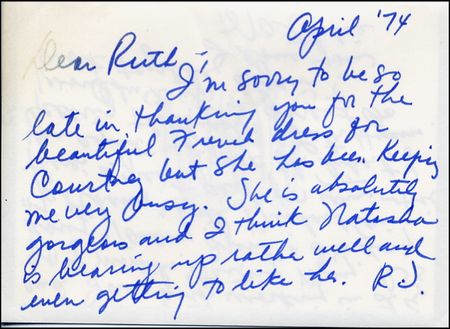 April '74
Dear Ruth -
I'm sorry to be so
late in thanking you for the
beautiful French dress for
Courtney but she has been keeping
me very busy. She is absolutely
gorgeous and I think Natasha
is bearing up rather well and
even getting to like her. R.J.